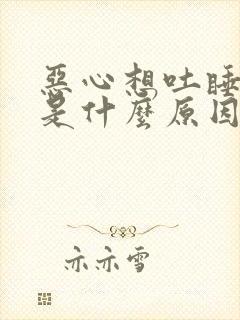 惡心想吐睡
是什麼原因
亦亦雪